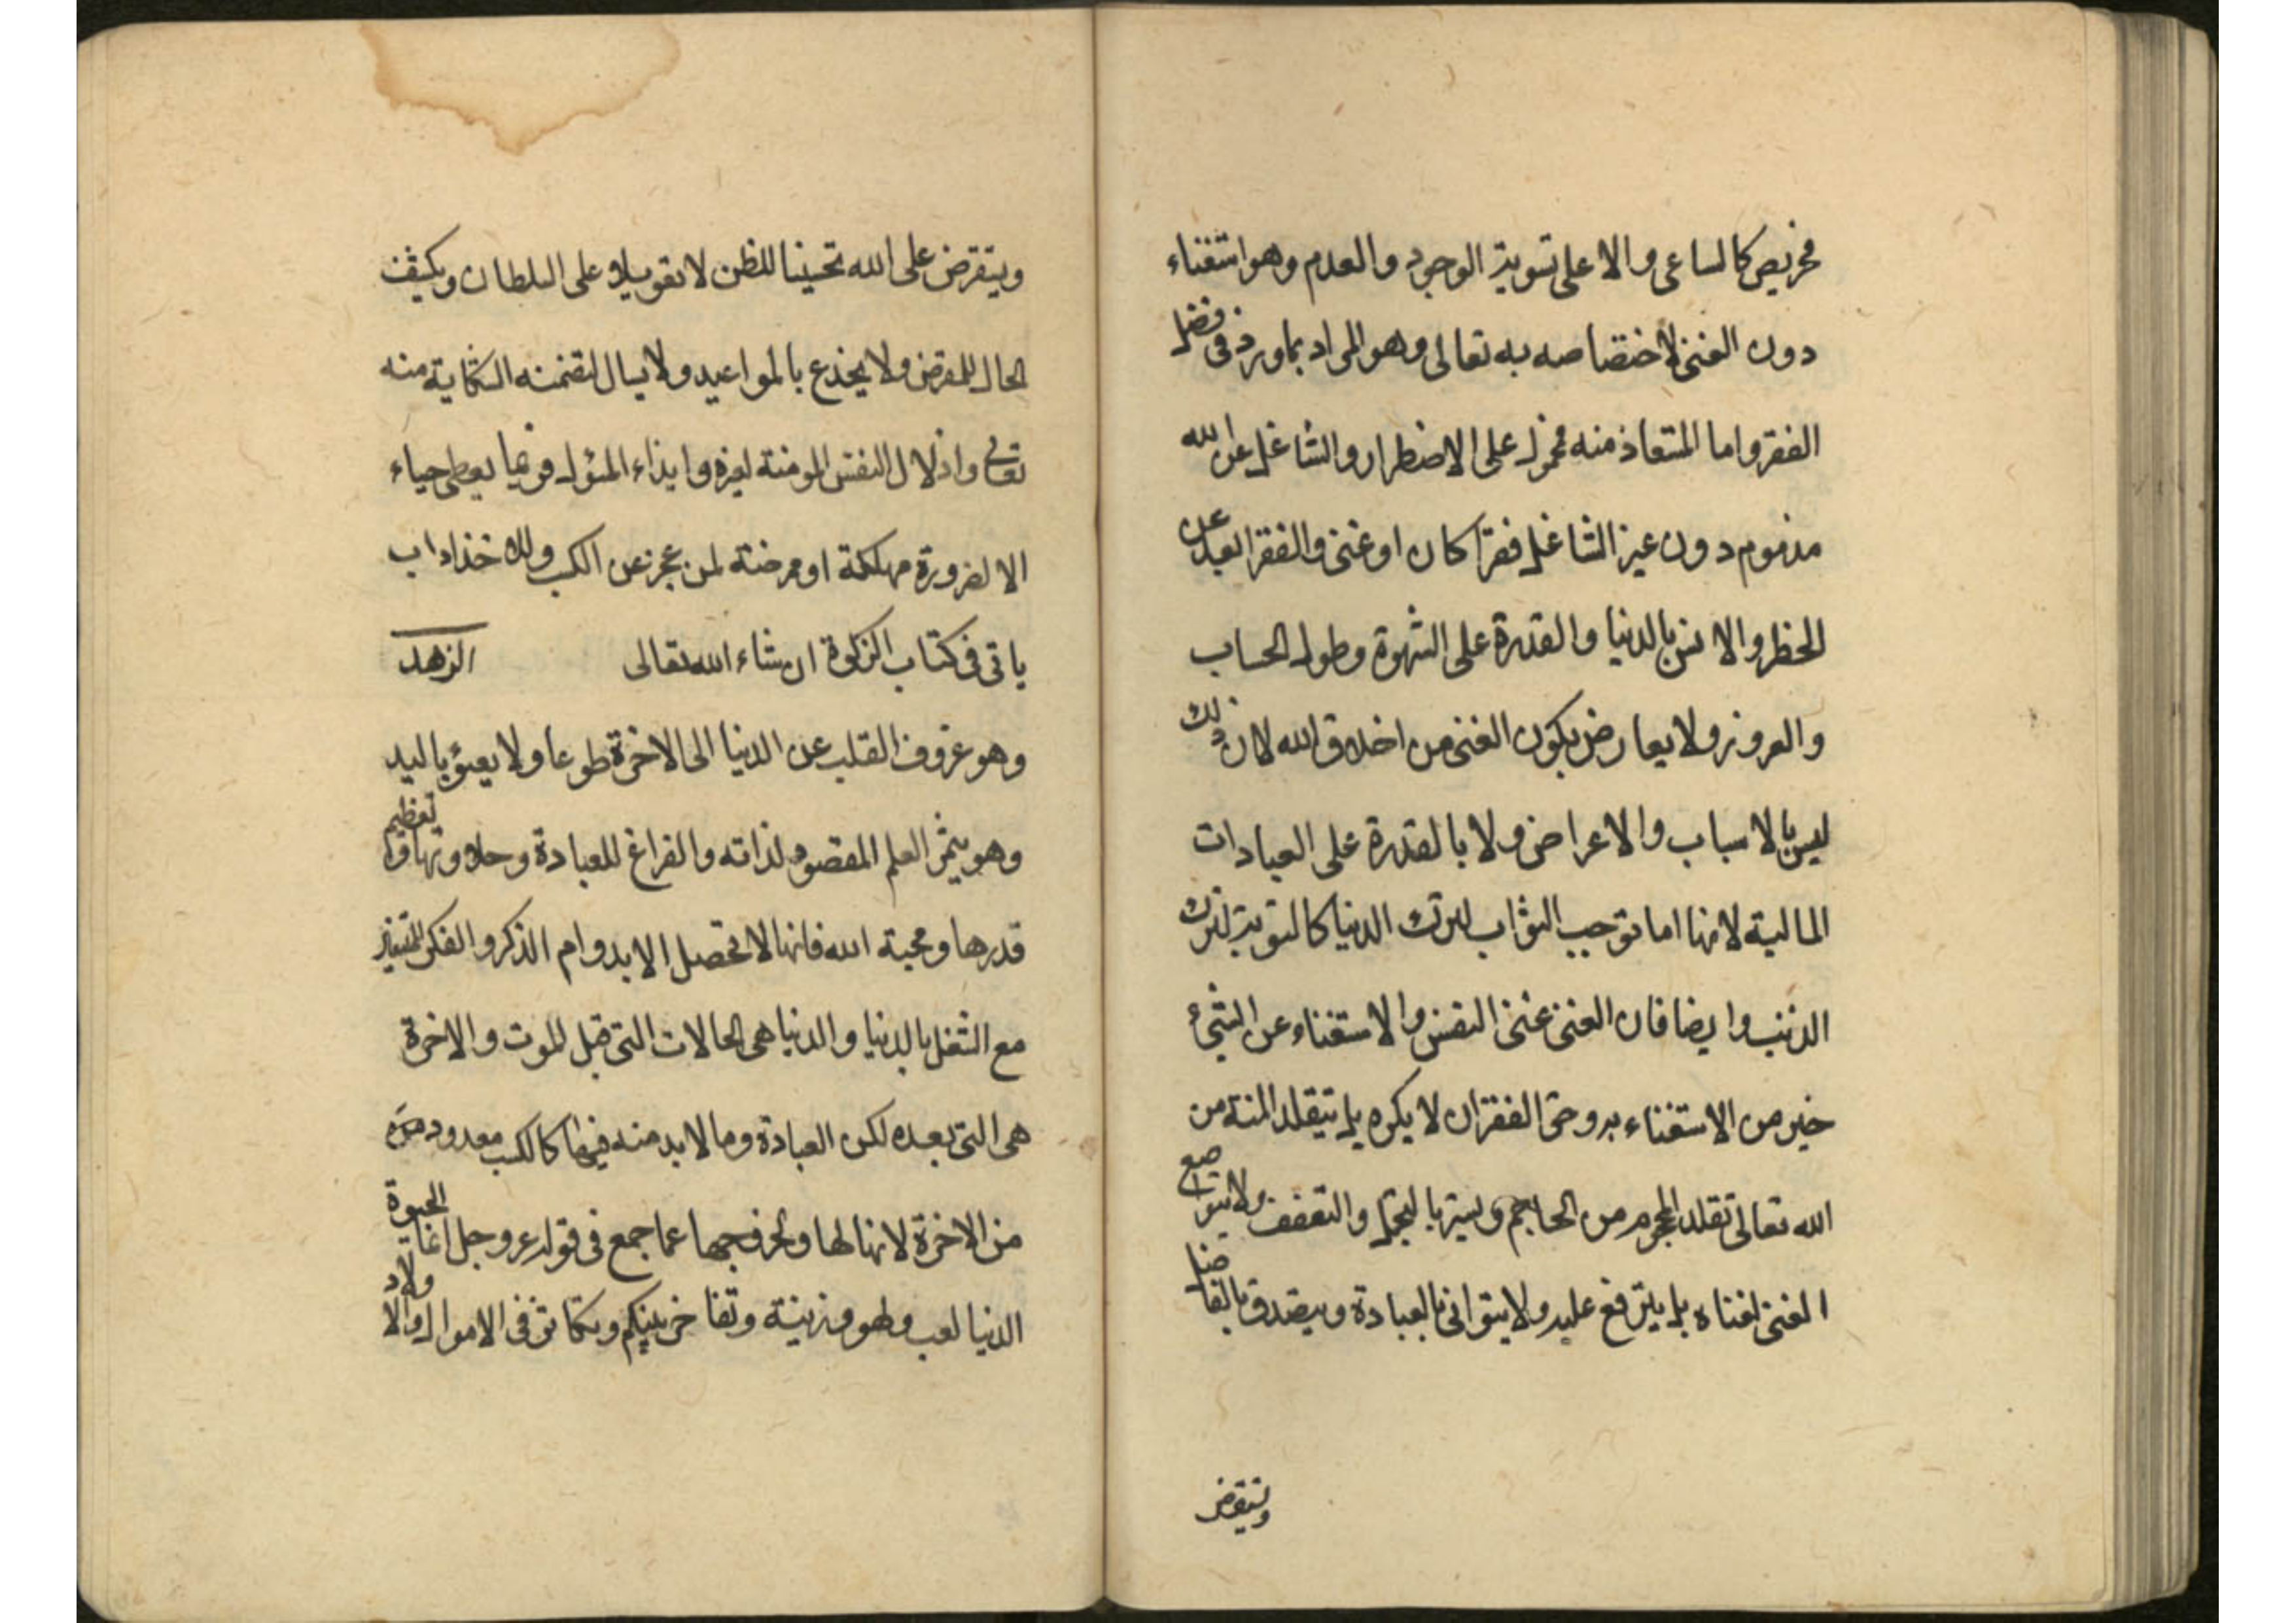 فحريص كالساعى والاعلى تسوية الوجود والعدم وهو استغناء
دون الغنى لاختصاصه به تعالى وهو المراد بما ورد فى فضل
الفقر واما المستعاذ منه فمحمول على الاضطرار والشاغل عن الله
مذموم دون غير الشاغل فقرا كان او غنى والفقر ابعد عن
الخطر والانس بالدنيا والقدرة على الشهوة وطول الحساب
ولا يعارض بكون الغنى من اخلاق الله لان ذلك
ليس بالاسباب والاعراض ولا بالقدرة على العبادات
المالية لانها انما توجب الثواب لترك الدنيا كالتوبة لترك
الذنب وايضا فان الغنى غنى النفس والاستغناء عن الشىء
خير من الاستغناء به وحق الفقر ان لا يكره بل يتقلد المنة من
الله تعالى تقلد المحجوم من الحاجم ويستر بالتجمل والتعفف ولا يتواضع
الغنى لغناه بل يترفع عليه ولا يتوانى بالعبادة ويتصدق بالفاضل
ويستقرض
ويستقرض على الله تحسينا للظن لا تعويلا على السلطان ويكشف
الحال للمقرض ولا يخدع بالمواعيد ولا يسال لتضمنه الشكاية منه
تعالى واذلال النفس المومنة لغيره وايذاء المسؤل فربما يعطى حياء
الا لضرورة مهلكة او ممرضة لمن عجز عن الكسب وللاخذ اداب
ياتى فى كتاب الزكوة ان شاء الله تعالى الزهد
وهو عزوف القلب عن الدنيا الى الاخرة طوعا ولا يعبؤ باليد
وهو يثمر العلم المقصود لذاته والفراغ للعبادة وحلاوتها وتعظيم
قدرها ومحبة الله فانها لا تحصل الا بدوام الذكر والفكر المتعذر
مع الشغل بالدنيا والدنيا هى الحالات التى قبل الموت والاخرة
هى التى بعده لكن العبادة وما لا بد منه فيها كالكسب معدودة
من الاخرة لانها لها ولخروجها عما جمع فى قوله عز وجل انما الحيوة
الدنيا لعب ولهو وزينة وتفاخر بينكم وتكاثر فى الاموال والاولاد